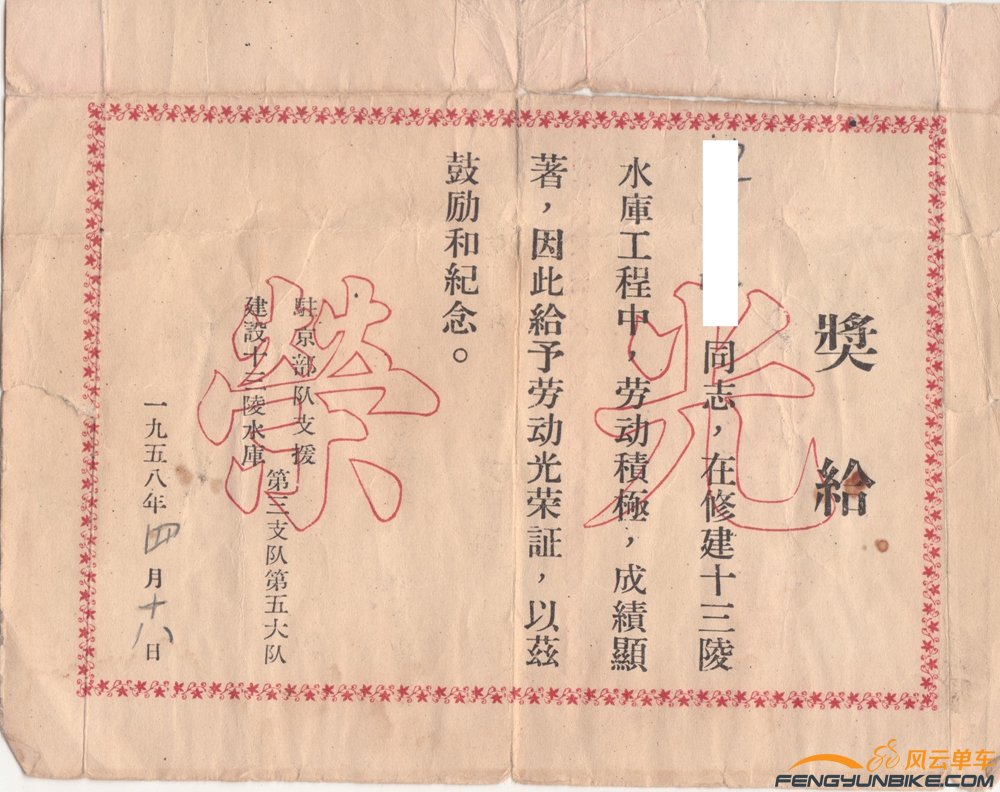 光榮
奬給
同志，在修建十三陵
水庫工程中，劳动積極，成績顯
著，因此給予劳动光荣証，以茲
鼓励和紀念。
駐京部队支援
建設十三陵水庫
第三支队第五大队
一九五八年四月十八日
风云单车
FENGYUNBIKE.COM